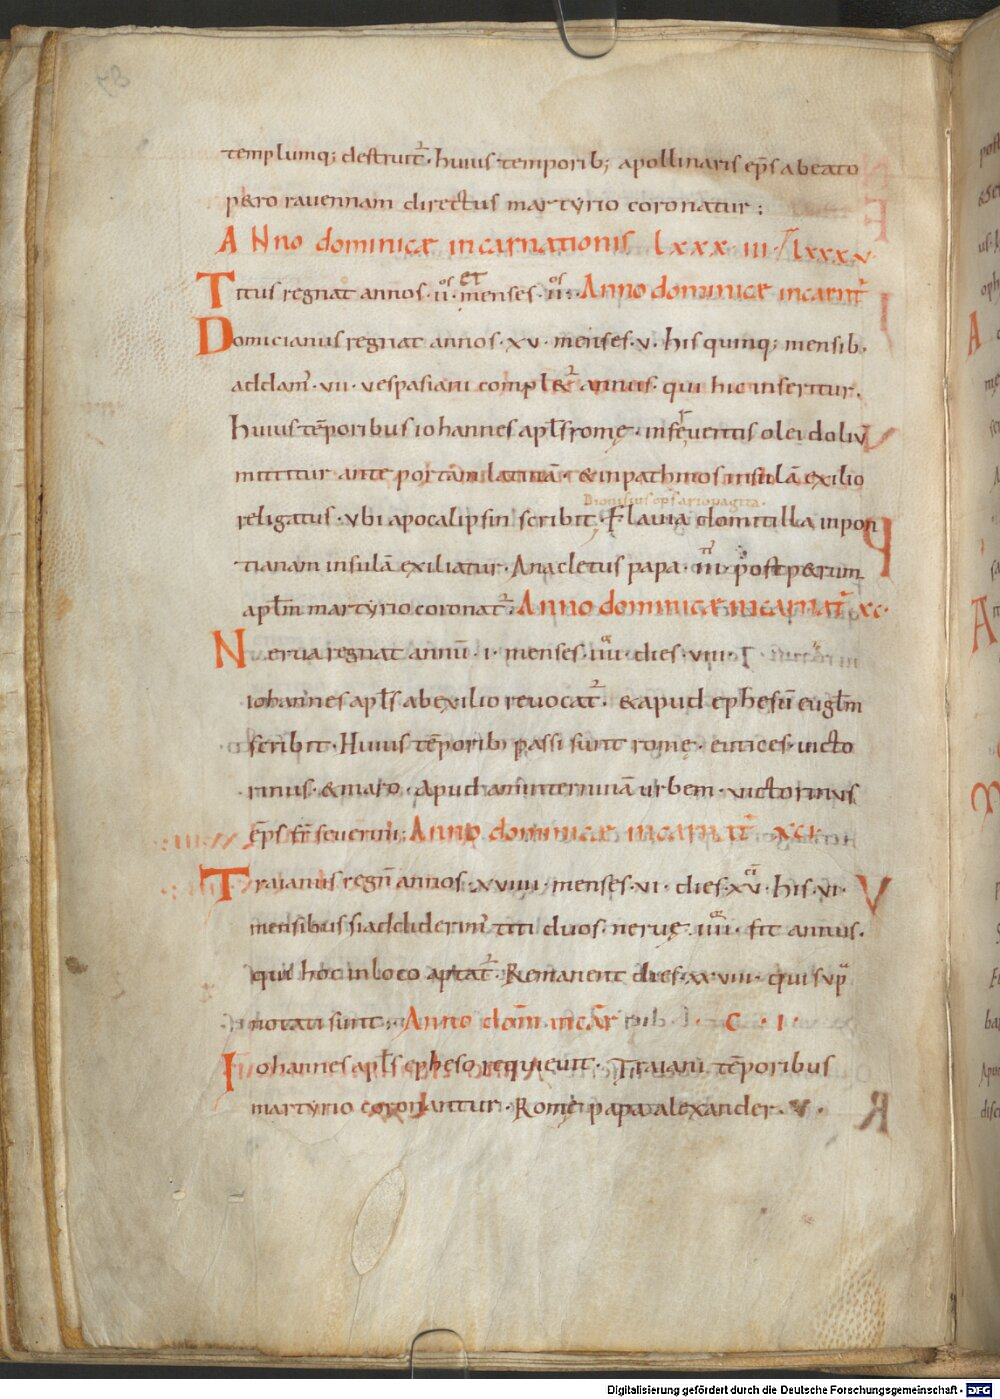 templumq; destruit᷑. huius temporib; apollinaris ep̄s abeato
p&ro rauennam directus martyrio coronatur;
ANno dominicæ incarnationis lxxx·iii· lxxxv·
Titus regnat annos·ii·et menses·ii·Anno dominicæ incarnt̄
Domicianus regnat annos·xv·menses·v·his quinq; mensib.
addam̄·vii·vespasiani compl&᷑ annus·qui hic inseritur.
huius tēporibus iohannes apl̄s romę·in feruentis olei doliv̄
mittitur ante portam latinā·&inpathmos insulā exilio
Dionisius ep̄s ariopagita.
religatus·vbi apocalipsin scribit·Flauia domitilla inpon
tianam insulā exiliatur·Anacletus papa·iii·post p&rum
apl̄m martyrio coronat᷑·Anno dominicæ incarnat̄ xc·
Nerua regnat annū·i·menses·iiii·dies·viii·
iohannes apl̄s abexilio reuocat᷑·&apud ephesū eugl̄m
scribit·Huius tēporib; passi sunt romę·eutices·uicto
rinus·&maro·Apud aminterninā urbem·uictorinus
ep̄s fr̄ seuerini;Anno dominicæ incarnat̄ xci·
Traianus regn̄ annos·xviiii·menses·vi·dies·xv·his·vi·
mensibus si addiderim̄ titi duos·neruę·iiii·fit annus.
qui hoc inloco aptat᷑·Remanent dies·xxviii·qui sup̄
notati sunt;Anno dom̄ incar̄ c·i·
Iohannes apl̄s epheso requieuit·Traiani tēporibus
martyrio coronantur·Romę papa alexander·v·
Digitalisierung gefördert durch die Deutsche Forschungsgemeinschaft - DFG